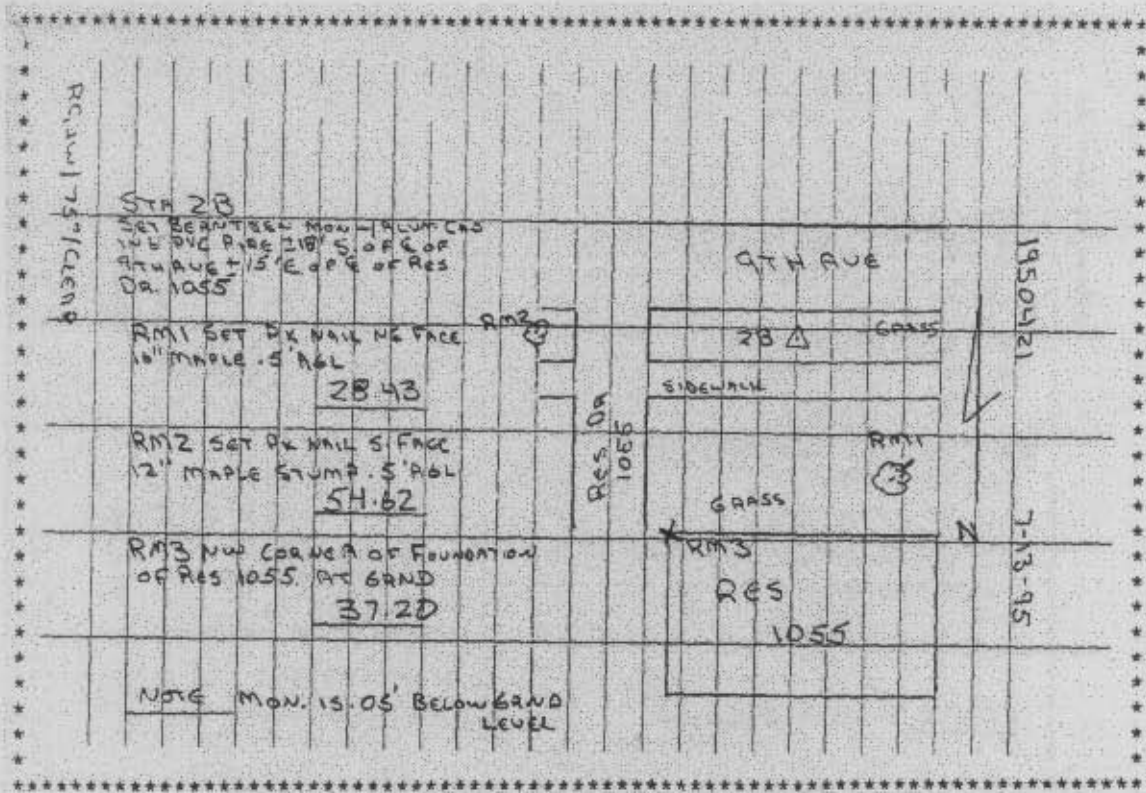 STA 2B
SET BERNTSEN MON W/ALUM CAP
IN 6" PVC PIPE 218' S. OF ℄ OF
9TH AVE + 15' E OF ℄ OF RES
DR. 1055
RM1 SET PK NAIL NE FACE
MAPLE .5' AGL
28.43
RM2 SET PK NAIL S FACE
12" MAPLE STUMP .5' AGL
54.62
RM3 NW CORNER OF FOUNDATION
OF RES 1055 AT GRND
37.20
NOTE MON. IS .05' BELOW GRND
LEVEL
9TH AVE
RM2
2B
GRASS
SIDEWALK
RES DR
1055
RM1
GRASS
N
RM3
RES
1055
19504121
7-13-95